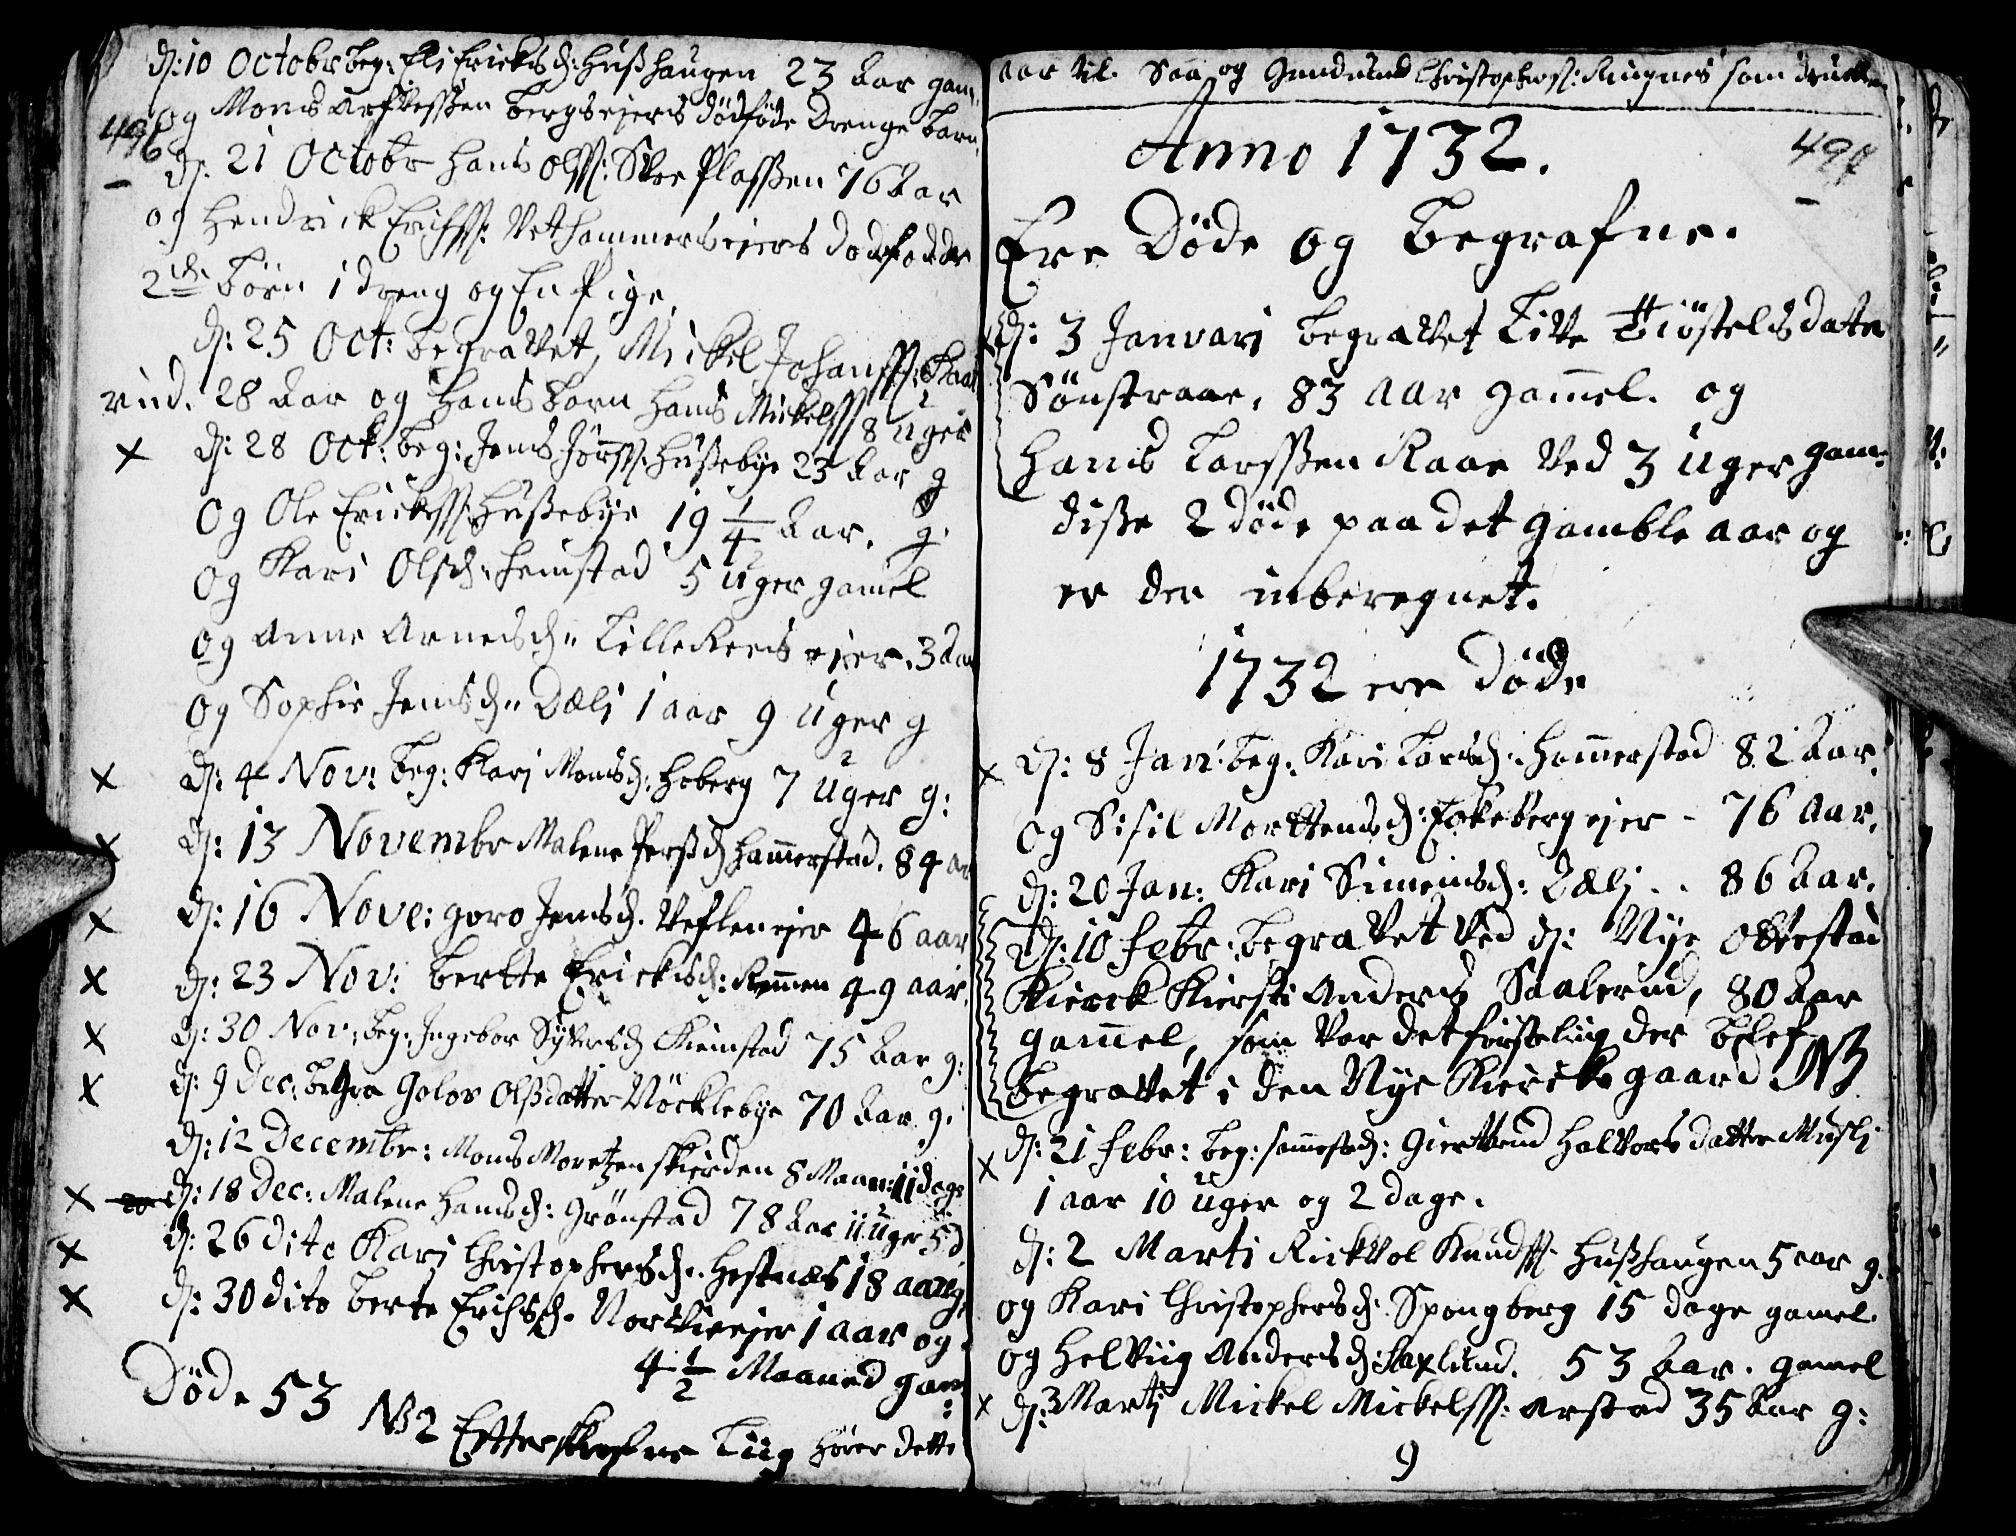 d: 10 Octobr beg: Eli Ericksd: Hußhaugen 23 aar gam:
496
og Mons bergsejers dødføde drenge barn
d: 21 Octobr Hans Olss: Skoe Plassen 76 aar
og Hendrick Erichss: Vethammersejers dødfødde
2de børn 1 dreng og En Pige.
d: 25 Oct: begravet, Mickel Johanss:
rud. 28 aar og hans barn Hans Mickelss 8 uger
x d: 28 Oct: beg: Jens Hußebye 23 aar g
Og Ole Erickss: Hußebye 19 1/4 aar. g.
Og Kari Olsd: Hemstad 5 uger gamel
Og Anne Arnesd: Lille Reens ejer. 3 aar
Og Sophie Jensd: Dæli 1 aar 9 uger g
x d: 4 Nov: beg: Kari Monsd: Hoberg 7 uger g:
x d: 13 Novembr Malene Persd Hammerstad. 84 aar
x d: 16 Nove: Goro Jensd. Veflenejer 46 aar
x d: 23 Nov: Bertte Ericksd: Remmen 49 aar.
x d: 30 Nov: beg: Ingebor Syversd Kiemstad 75 aar g:
x d: 9 Dec: Golov Olsdatter Nöcklebye 70 aar g.
d: 12 Decembr: Mons Moretzen Skierden 8 Maan: 11 dage
x d: 18 Dec: Malene Hansd: Grönstad 78 aar 11 uger 5 d
x d: 26 dito Kari Christophersd: Hestnæs 18 aar g.
x d: 30 dito Berte Erichsd. Norvieejer 1 aar og
4 1/2 Maaned gam:
Døde 53
NB 2 Efterskrefne Liig hører dette
aar til. Saa og Gundmund Christophersf: Ringnes som
Anno 1732.
497
Ere Døde og Begrafne.
d: 3 Januari begravet Live Tiöstelsdater
Sönstraae, 83 aar gamel. og
Hans Larssen Raae ved 3 uger gam:
disse 2 døde paa det gamble aar og
er der inberegnet.
1732 ere Døde
x d: 8 Jan: beg: Kari Larsd: Hamerstad 82 aar.
og Sisil Mortensd: Eokeberg ejer - 76 aar.
d: 20 Jan: Kari Simensd: Dæli .. 86 aar.
d: 10 Febr: begravet ved d: Nye Ottestad
Kierck Kiersti Anders Saalerud, 80 aar
gamel, som var det første liig der blef
begravet i den Nye Kiercke gaard NB
x d: 21 Febr: beg: Giertrud Halvorsdatter Musli
1 aar 10 uger og 2 dage.
d: 2 Marti Rickvol Knudss: Hußhaugen 5 aar g.
og Kari Christophersd: Spongberg 15 dage gamel.
og Helviig Andersd: Saxlund. 53 aar. gamel
x d: 3 Marti Mickel Mickelss: Arstad 35 aar g:
9